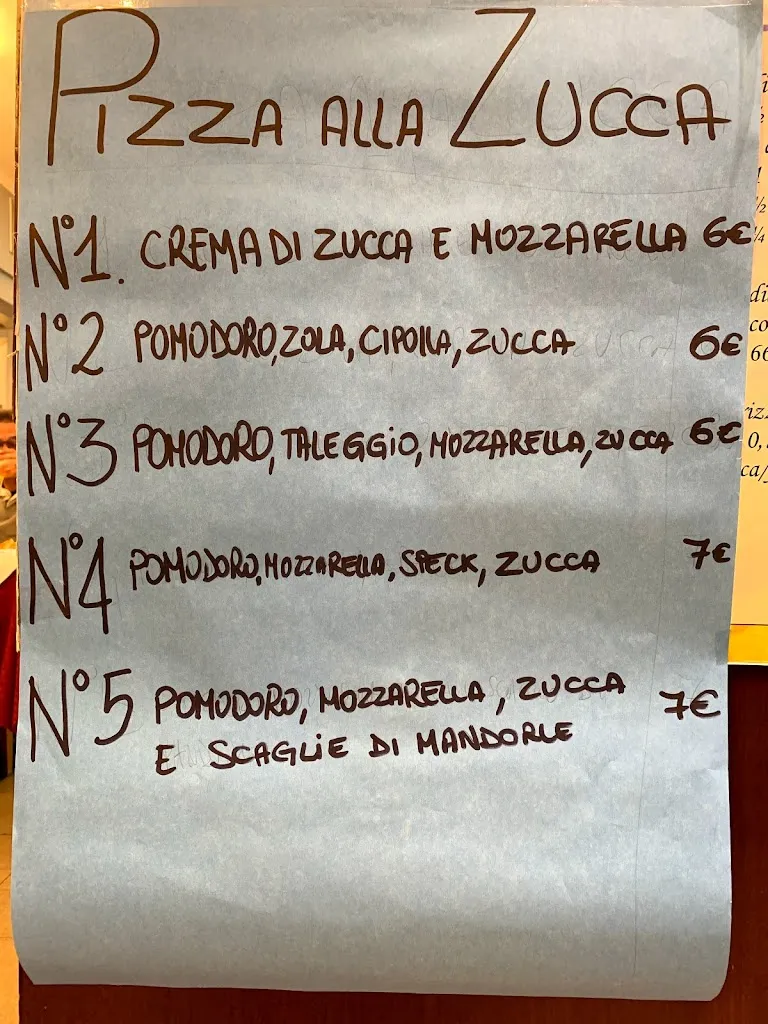 PIZZA ALLA ZUCCA
N°1. CREMA DI ZUCCA E MOZZARELLA 6€
N°2 POMODORO, ZOLA, CIPOLLA, ZUCCA 6€
N°3 POMODORO, TALEGGIO, MOZZARELLA, ZUCCA 6€
N°4 POMODORO, MOZZARELLA, SPECK, ZUCCA 7€
N°5 POMODORO, MOZZARELLA, ZUCCA 7€
E SCAGLIE DI MANDORLE